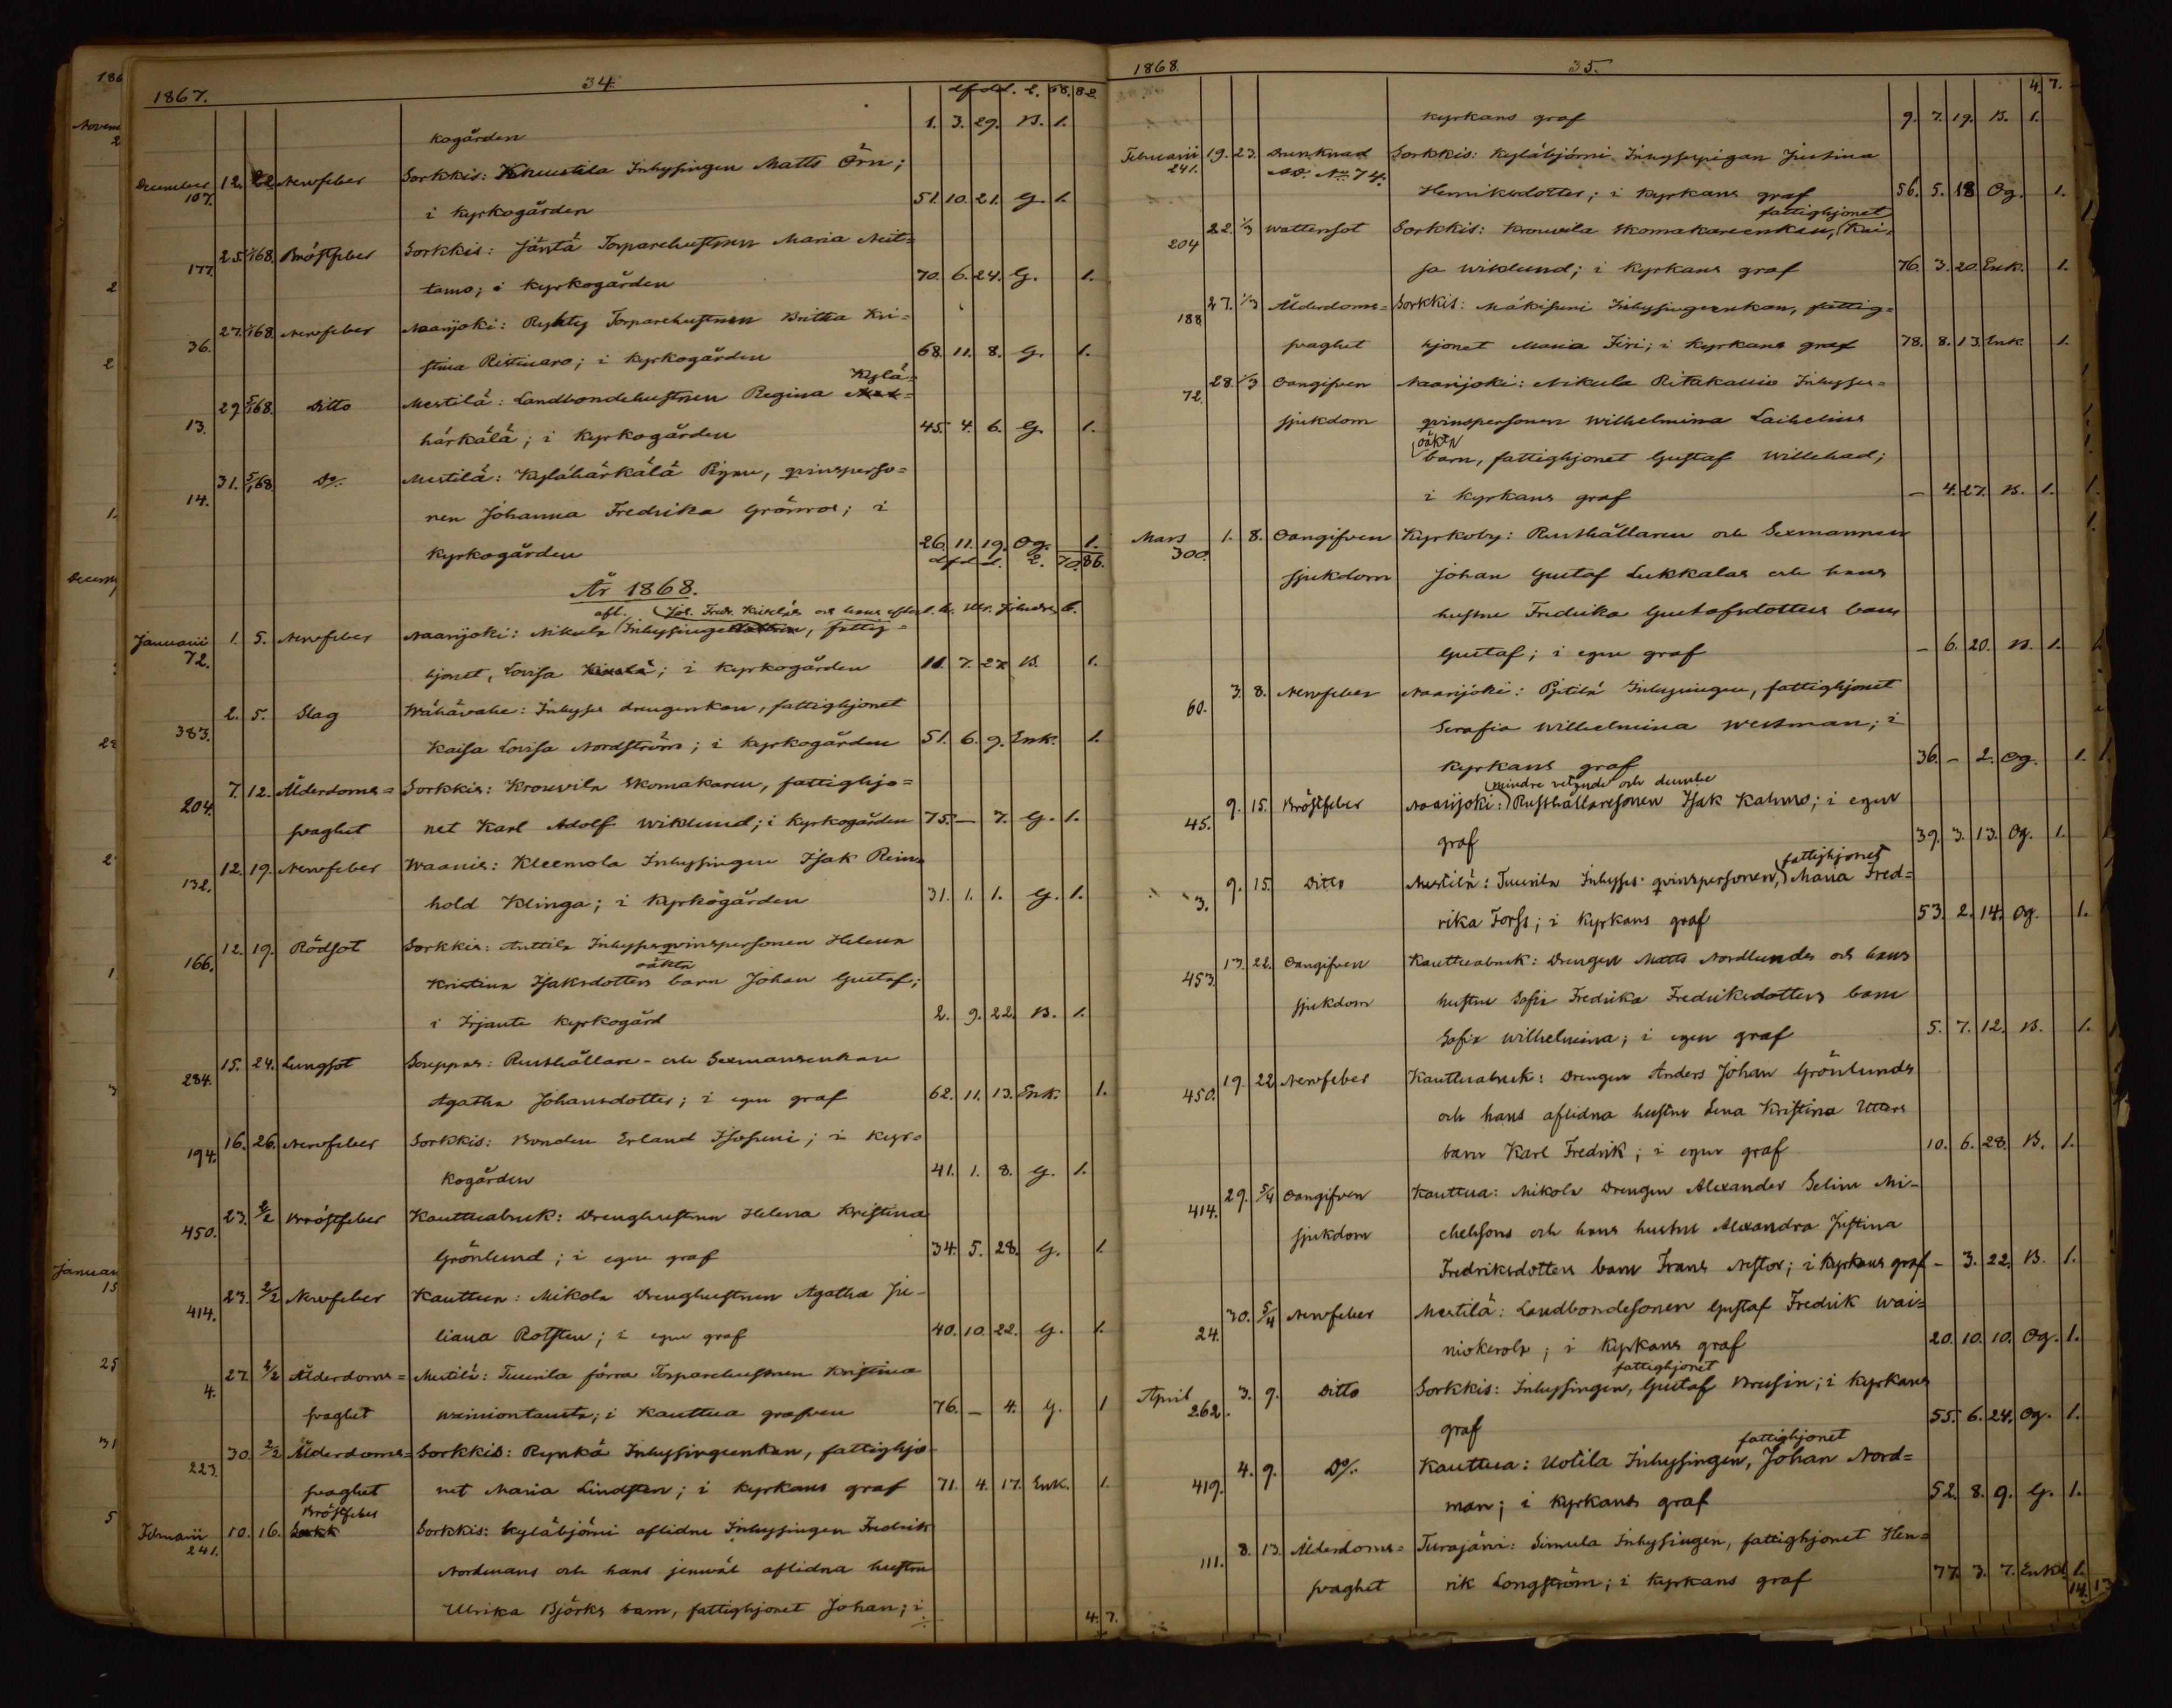 1867. 34.
dfdd. 2. 68. 82
kogården 1. 3. 29. B. 1.
December 12. 22 Nervfeber Sorkkis: Knuutila Inhysingen Matts Örn;
107. i kyrkogården 51. 10. 21. G. 1.
25. 68. Bröstfeber Sorkkis: Jäntä Torparehustrun Maria Neit=
177. tamo; i kyrkogården 70. 6. 24. G. 1.
27. 68. Nervfeber Naarijoki: Ryhty Torparehustrun Britta Kri=
36. stina Ristinaro; i kyrkogården 68. 11. 8. G. 1.
29 5/1 68. Ditto Mestilä: Landbondehustrun Regina Kylä=
13. härkälä; i kyrkogården 45. 4. 6. G. 1.
31. 5/1 68 Do. Mestilä: Kylähärkälä Pigan, qvinsperso=
14. nen Johanna Fredrika Grönroos; i
kyrkogården 26. 11. 19. Og. 1.
dfdd. 2. 70. 86.
År 1868.
afl. Joh. Fredr. Kivelä's och hans efterl. h.
Januarii 1. 5. Nervfeber Naarijoki: Nikula Inhysinge, fattig=
72. hjonet, Lovisa Kivelä; i kyrkogården 11. 7. 27 B. 1.
2. 5. Slag Wähävahe: Inhyses drengenkan, fattighjonet
383. Kaisa Lovisa Nordström; i kyrkogården 51. 6. 9. Enk. 1.
7. 12. Ålderdoms= Sorkkis: Krouvila Skomakaren, fattighjo=
204. svaghet net Karl Adolf Wiklund; i kyrkogården 75. — 7. G. 1.
12. 19. Nervfeber Waanis: Kleemola Inhysingen Isak Rein=
132. hold Klinga; i kyrkogården 31. 1. 1. G. 1.
12. 19. Rödsot Sorkkis: Anttila Inhysesqvinspersonen Helena
oäkta
166. Kristina Isaksdotters barn Johan Gustaf;
i Irjanta kyrkogård 2. 9. 22. B. 1.
15. 24. Lungsot Souppas: Rusthållare- och Sexmansenkan
284. Agatha Johansdotter; i egen graf 62. 11. 13. Enk. 1.
16. 26. Nervfeber Sorkkis: Bonden Erland Isosuni; i kyr=
194. kogården 41. 1. 8. G. 1.
23. 2/2 Bröstfeber Kauttuabruk: Drenghustrun Helena Kristina
450. Grönlund; i egen graf 34. 5. 28. G. 1.
23. 2/2 Nervfeber Kauttua: Mikola Drenghustrun Agatha Ju-
414. liana Rotsten; i egen graf 40. 10. 22. G. 1.
27. 2/2 Ålderdoms= Mestilä: Tuurila förra Torparehustrun Kristina
4. svaghet Wainiontausta; i Kauttua grafven 76. — 4. G. 1
30. 2/2 Ålderdoms= Sorkkis: Rynkä Inhysingeenkan, fattighjo
223. svaghet net Maria Lindsten; i kyrkans graf 71. 4. 17. Enk. 1.
Bröstfeber
Februarii 10. 16. Sorkkis: Kyläbjörni aflidne Inhysingen Fredrik
241. Nordmans och hans jemväl aflidna hustru
Ulrika Björks barn, fattighjonet Johan; i
4. 7.
1868. 35.
4. 7.
kyrkans graf 9. 7. 19. B. 1.
Februarii 19. 23. Drunknad Sorkkis: Kyläbjörni Inhysespigan Justina
241. AD. No. 74. Henriksdotter; i kyrkans graf 56. 5. 18 Og. 1.
fattighjonet
22. 1/3 Wattensot Sorkkis: Krouvila Skomakareenkan, Kai-
204 sa Wiklund; i kyrkans graf 76. 3. 20. Enk. 1.
27. 1/3 Ålderdoms= Sorkkis: Mäkisuni Inhysingeenkan, fattig=
188 svaghet hjonet Maria Firi; i kyrkans graf 78. 8. 13. Enk. 1.
28. 1/3 Oangifven Naarijoki: Nikula Ritakallio Inhyses=
72. sjukdom qvinspersonen Wilhelmina Laihelins
oäkta
barn, fattighjonet Gustaf Willehad;
i kyrkans graf — 4. 27. B. 1.
Mars 1. 8. Oangifven Kyrkoby: Rusthållaren och Sexmannen
300. sjukdom Johan Gustaf Lukkalas och hans
hustru Fredrika Gustafsdotters barn
Gustaf; i egen graf — 6. 20. B. 1.
3. 8. Nervfeber Naarijoki: Pjetilä Inhysingen, fattighjonet
60. Serafia Wilhelmina Westman; i
kyrkans graf 36. — 2. Og. 1.
mindre vetande och dumbe
9. 15. Bröstfeber Naarijoki: Rusthållaresonen Isak Kahmo; i egen
45. graf 39. 3. 13. Og. 1.
fattighjonet
9. 15. Ditto Mestilä: Tuurila Inhyses qvinspersonen, Maria Fred=
3. rika Forss; i kyrkans graf 53. 2. 14. Og. 1.
13. 22. Oangifven Kauttuabruk: Drengen Matts Nordlunds och hans
453. sjukdom hustru Sofia Fredrika Fredriksdotters barn
Sofia Wilhelmina; i egen graf 5. 7. 12. B. 1.
19. 22 Nervfeber Kauttuabruk: Drengen Anders Johan Grönlunds
450. och hans aflidna hustru Lena Kristina Utters
barn Karl Fredrik; i egen graf 10. 6. 28. B. 1.
29. 5/4 Oangifven Kauttua: Mikola Drengen Alexander Selim Mi-
414. sjukdom chelssons och hans hustru Alexandra Justina
Fredriksdotters barn Frans Nestor; i kyrkans graf — 3. 22. B. 1.
30. 5/4 Nervfeber Mestilä: Landbondesonen Gustaf Fredrik Wai=
24. niokerola; i kyrkans graf 20. 10. 10. Og. 1.
fattighjonet
April 3. 9. Ditto Sorkkis: Inhysingen, Gustaf Brusin; i kyrkans
262. graf 55. 6. 24. Og. 1.
fattighjonet
4. 9. Do. Kauttua: Uotila Inhysingen, Johan Nord=
419. man; i kyrkans graf 52. 8. 9. G. 1.
8. 13. Ålderdoms= Turajärvi: Simula Inhysingen, fattighjonet Hen=
111. svaghet rik Longström; i kyrkans graf 77. 3. 7. Enkl. 1.
14. 13